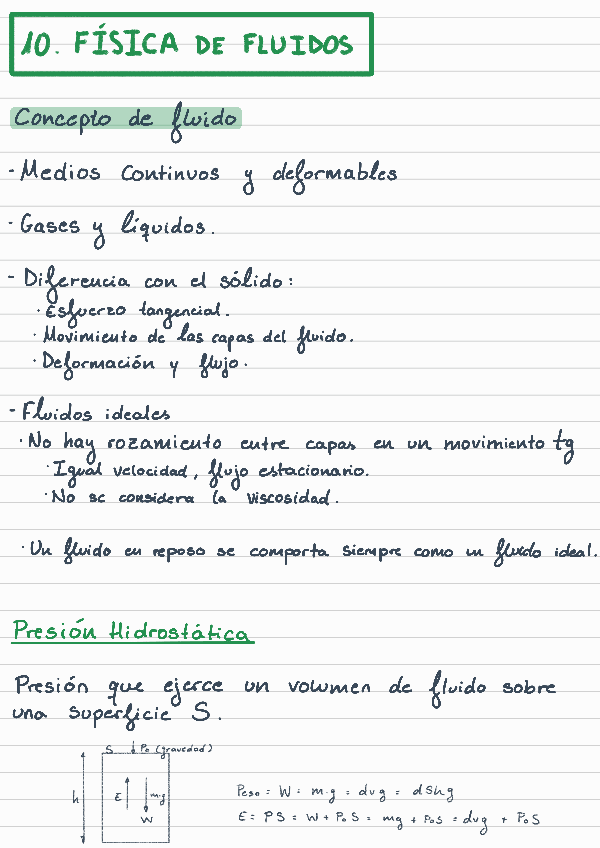 10. FÍSICA DE FLUIDOS
Concepto de fluido
- Medios continuos y deformables
- Gases y líquidos.
- Diferencia con el sólido:
· Esfuerzo tangencial.
· Movimiento de las capas del fluido.
· Deformación y flujo.
- Fluidos ideales
· No hay rozamiento entre capas en un movimiento tg
· Igual velocidad, flujo estacionario.
· No se considera la viscosidad.
· Un fluido en reposo se comporta siempre como un fluido ideal.
Presión Hidrostática
Presión que ejerce un volumen de fluido sobre
una superficie S.
S ↓ P₀ (gravedad)
h E m·g
W
Peso = W = m·g = dvg = dShg
E = PS = W + P₀S = mg + P₀S = dvg + P₀S